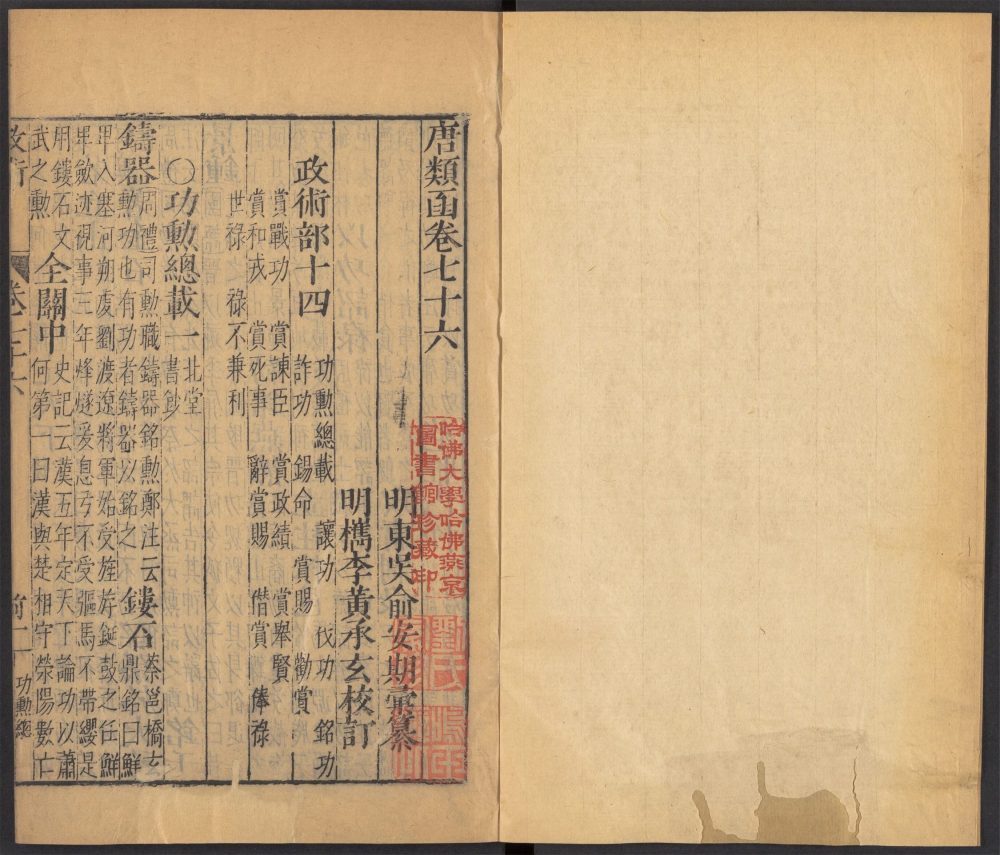 唐類函卷七十六
明東吳俞安期彙纂
明檇李黃承玄校訂
政術部十四
功勲總載 讓功 伐功 銘功
詐功 錫命 賞賜 勸賞
賞戰功 賞諫臣 賞政績 賞舉賢
賞和戎 賞死事 辭賞賜 僭賞 俸祿
世祿 祿不兼利
〇功勲總載一 北堂書鈔
鑄器 周禮司勲職鑄器銘勲鄭注云
勲功也有功者鑄器以銘之 鏤石 蔡邕橋玄
鼎銘曰鮮
卑入塞河朔虔劉渡遼將軍始受旄旂鉦鼓之任鮮
卑斂迹視事三年烽燧爰息亏不受驅馬不帶纓是
用鏤石文
武之勲 全關中 史記云漢五年定天下論功以蕭
何第一曰漢與楚相守滎陽數亡
政術 卷七十六 功勲總
哈佛大學哈佛燕京
圖書館珍藏印